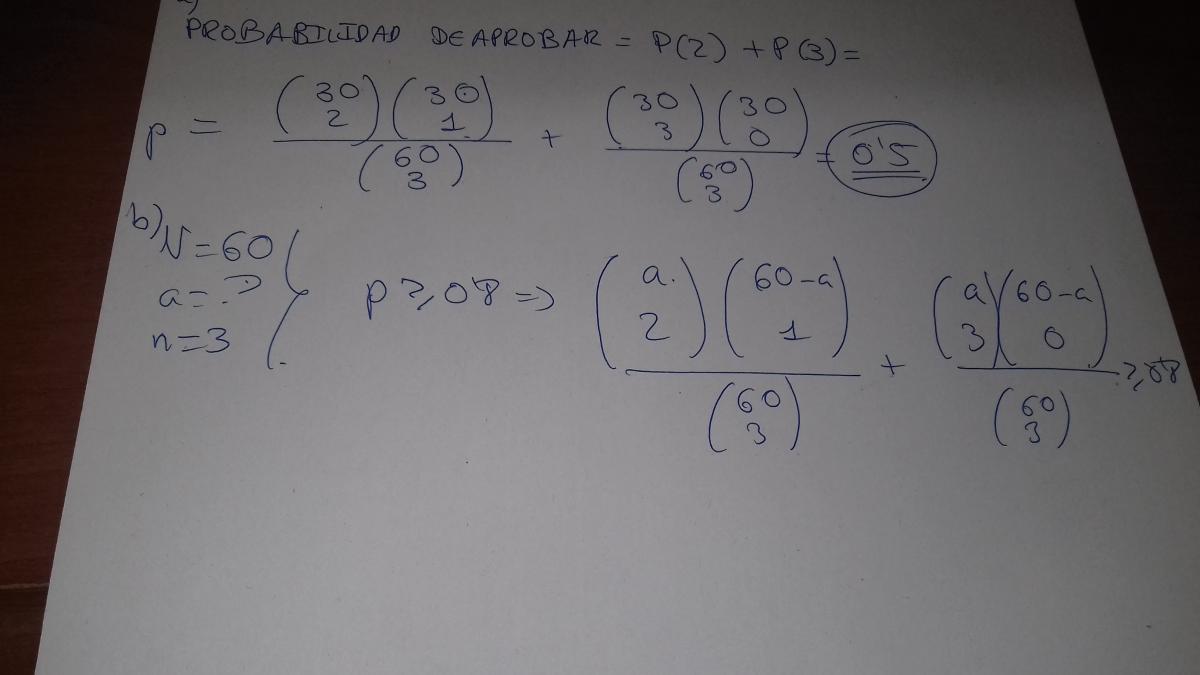 a)
PROBABILIDAD DE APROBAR = P(2) + P(3) =
p = (30 2)(30 1) / (60 3) + (30 3)(30 0) / (60 3) = 0'5
b) N=60
a=?
n=3
p ≥ 0'8 => (a 2)(60-a 1) / (60 3) + (a 3)(60-a 0) / (60 3) ≥ 0'8